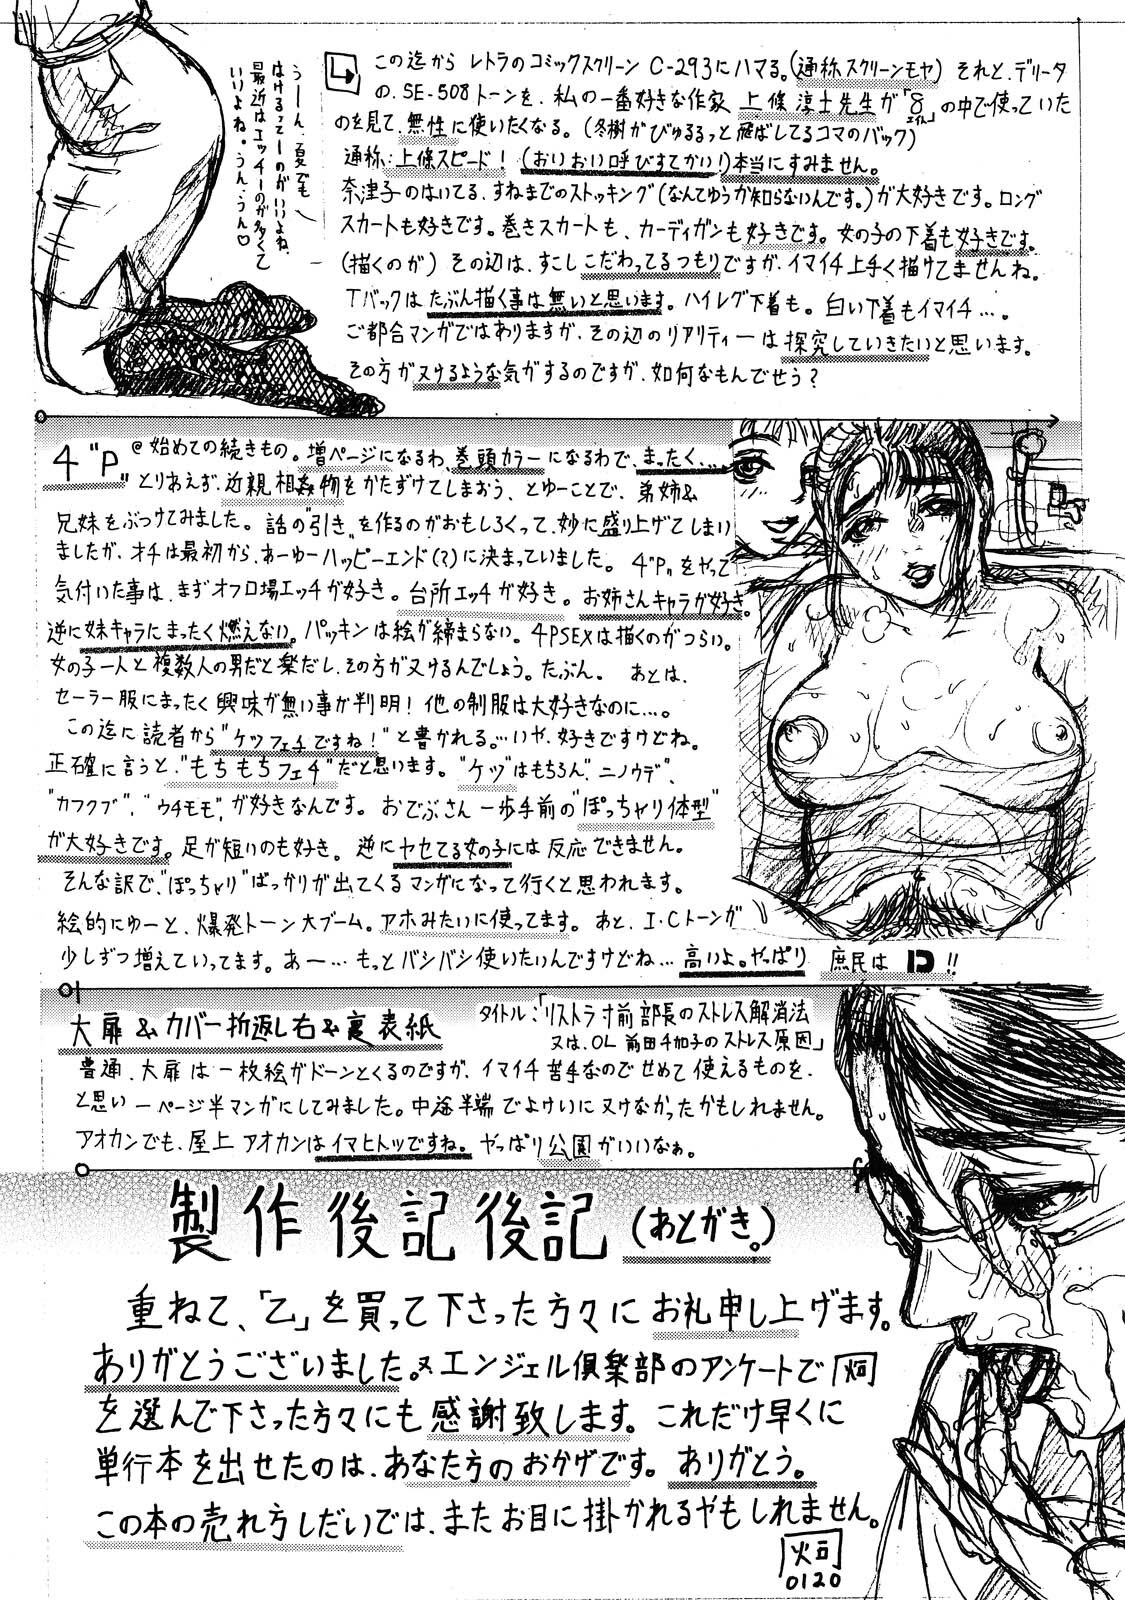 この迄から レトラのコミックスクリーン C-293にハマる。(通称スクリーンモヤ) それと、デリータ
の、SE-508トーンを、私の一番好きな作家 上條淳士先生が「8(エイト)」の中で使っていた
のを見て、無性に使いたくなる。(冬樹がびゅるるっと飛ばしてるコマのバック)
通称:上條スピード! (おいおい呼びすてかい!) 本当にすみません。
奈津子のはいてる、すねまでのストッキング(なんてゆうか知らないんです。)が大好きです。ロング
スカートも好きです。巻きスカートも、カーディガンも好きです。女の子の下着も好きです。
(描くのが) その辺は、すこしこだわってるつもりですが、イマイチ上手く描けてませんね。
Tバックはたぶん描く事は無いと思います。ハイレグ下着も。白い下着もイマイチ…。
ご都合マンガではありますが、その辺のリアリティーは探究していきたいと思います。
その方がヌけるような気がするのですが、如何なもんでせう?
うーん、夏でも
はけるってーのがいいよね、
最近はエッチーのが多くて
いいよね。うん、うん♡
4"P"
@始めての続きもの。増ページになるわ、巻頭カラーになるわで、まったく…
とりあえず、近親相姦物をかたずけてしまおう、とゆーことで、弟姉&
兄妹をぶつけてみました。話の"引き"を作るのがおもしろくって、妙に盛り上げてしまい
ましたが、オチは最初から、あーゆーハッピーエンド(?)に決まっていました。4"P"をやって
気付いた事は、まずオフロ場エッチが好き。台所エッチが好き。お姉さんキャラが好き。
逆に妹キャラにまったく燃えない。パッキンは絵が締まらない。4PSEXは描くのがつらい。
女の子一人と複数人の男だと楽だし、その方がヌけるんでしょう。たぶん。 あとは、
セーラー服にまったく興味が無い事が判明! 他の制服は大好きなのに…。
この迄に読者から"ケツフェチですね!"と書かれる。…いや、好きですけどね。
正確に言うと、"もちもちフェチ"だと思います。"ケツ"はもちろん、"ニノウデ"、
"カフクブ"、"ウチモモ"、が好きなんです。おでぶさん一歩手前の"ぽっちゃり体型"
が大好きです。足が短いのも好き。逆にヤセてる女の子には反応できません。
そんな訳で、"ぽっちゃり"ばっかりが出てくるマンガになって行くと思われます。
絵的にゆーと、爆発トーン大ブーム。アホみたいに使ってます。あと、I・Cトーンが
少しずつ増えていってます。あー…もっとバシバシ使いたいんですけどね…高いよ。やっぱり 庶民は !!
01
大扉&カバー折返し右&裏表紙
タイトル:「リストラ寸前部長のストレス解消法
又は、OL 前田千加子のストレス原因」
普通、大扉は一枚絵がドーンとくるのですが、イマイチ苦手なのでせめて使えるものを、
と思い一ページ半マンガにしてみました。中途半端でよけいにヌけなかったかもしれません。
アオカンでも、屋上アオカンはイマヒトツですね。やっぱり公園がいいなぁ。
製作後記後記(あとがき。)
重ねて、「乙」を買って下さった方々にお礼申し上げます。
ありがとうございました。又エンジェル倶楽部のアンケートで 火司
を選んで下さった方々にも感謝致します。これだけ早くに
単行本を出せたのは、あなた方のおかげです。ありがとう。
この本の売れ方しだいでは、またお目に掛かれるやもしれません。
火司
0120